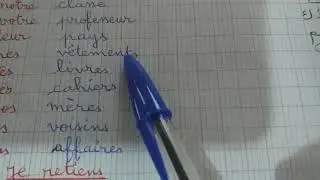 notre classe
votre professeur
leur pays
mes vêtements
tes livres
ses cahiers
nos mères
vos voisins
affaires
Je retiens